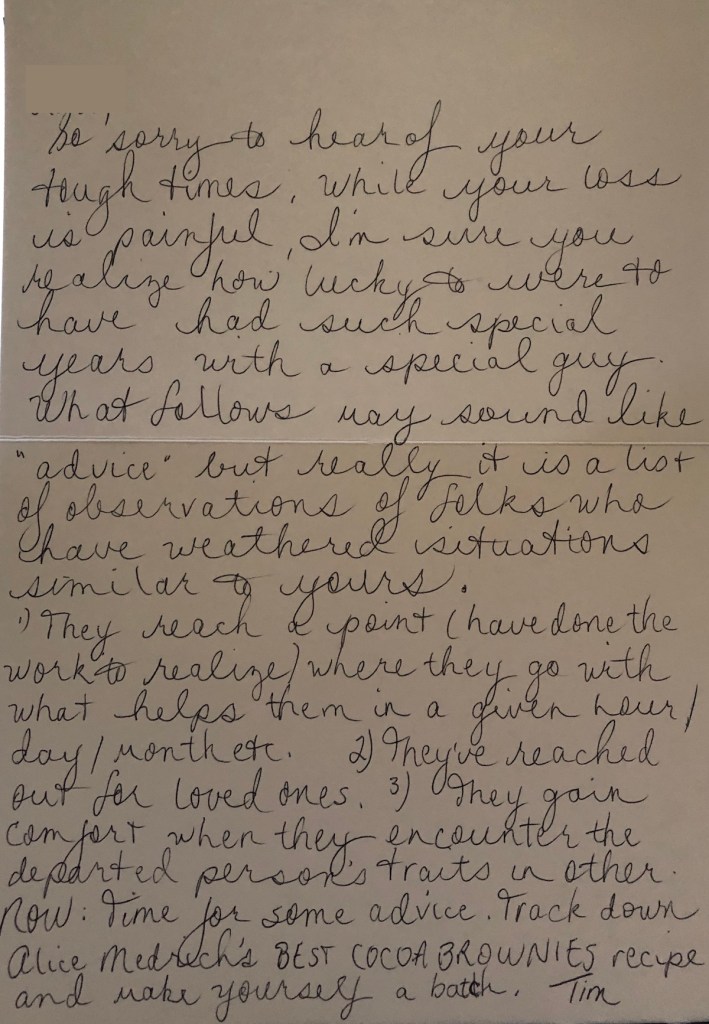 So sorry to hear of your
tough times. While your loss
is painful, I'm sure you
realize how lucky to were to
have had such special
years with a special guy.
What follows may sound like
"advice" but really it is a list
of observations of folks who
have weathered situations
similar to yours.
1) They reach a point (have done the
work to realize) where they go with
what helps them in a given hour/
day/month etc. 2) They've reached
out for loved ones. 3) They gain
comfort when they encounter the
departed person's traits in other.
NOW: Time for some advice. Track down
Alice Medrich's BEST COCOA BROWNIES recipe
and make yourself a batch. Tim